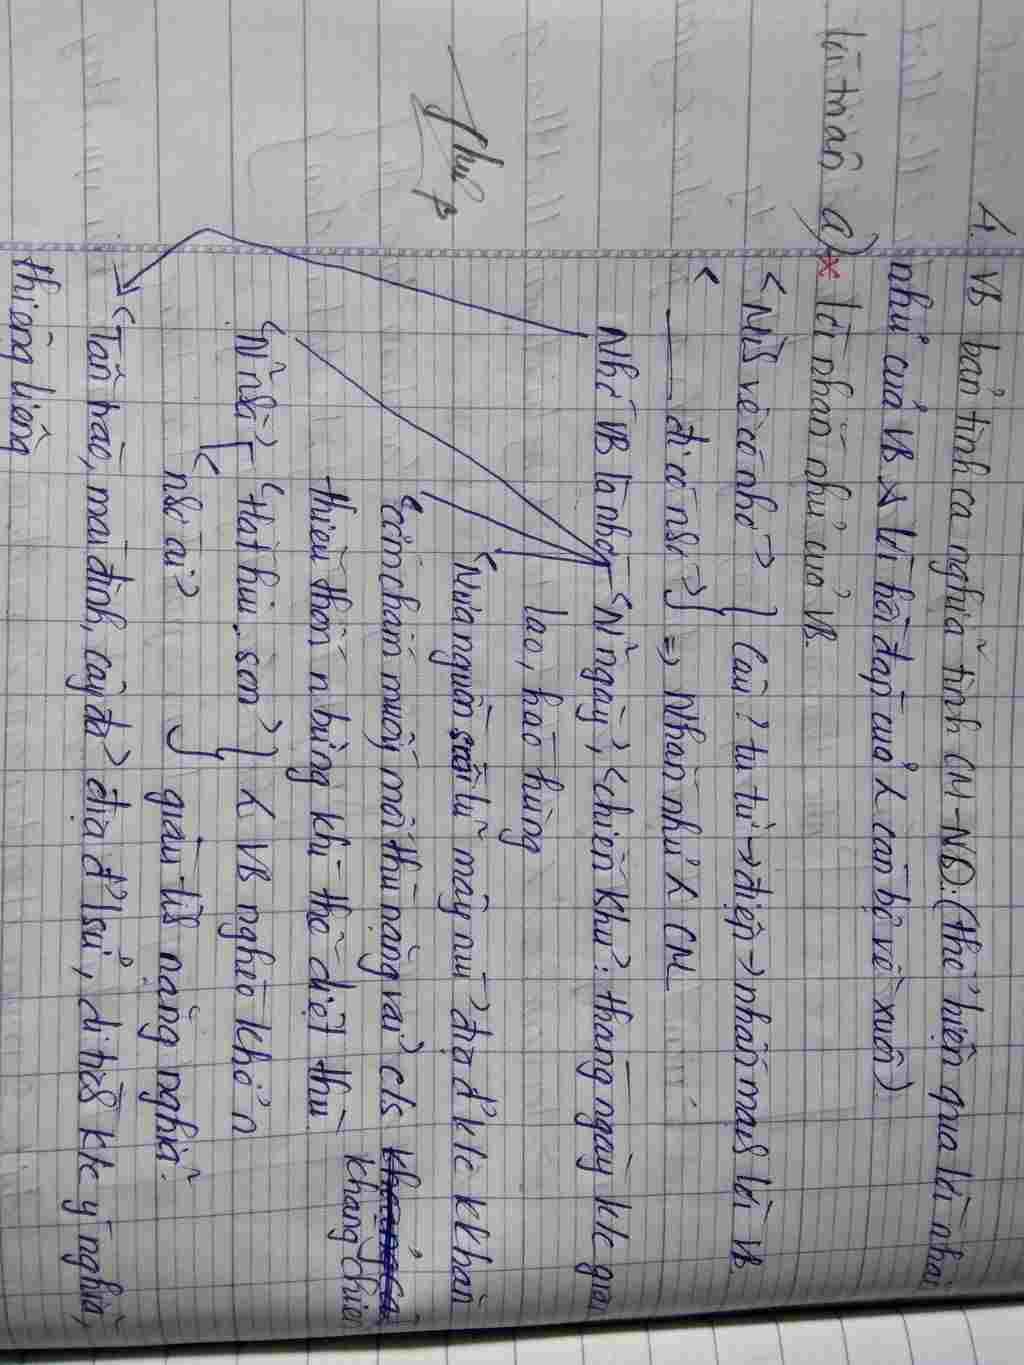 A. VB bản tình ca nghĩa tình CM-ND: (thể hiện qua lời nhắn
nhủ của VB & lời hỏi đáp của L cán bộ về xuôi)
lời nhắn a) * Lời nhắn nhủ của VB.
"Mình về có nhớ" } Câu ? tu từ → điệp → nhấn mạnh lời VB
" đi có nhớ" } => Nhắn nhủ L CM
Nhớ VB là nhớ "N ngày", "chiến khu": tháng ngày kk gian
lao, hào hùng
"Mưa nguồn suối lũ mây mù" → địa đ' kk khăn
"cơm chấm muối mối thù nặng vai" c/s kháng chiến
thiếu thốn n bừng khí thế diệt thù
"N nhà" [ "Hắt hiu.. son" } L VB nghèo khó n
nhớ ai? } giàu tình nặng nghĩa
"Tân Trào, mái đình, cây đa" địa đ' lsử, di tích kc ý nghĩa,
thiêng liêng